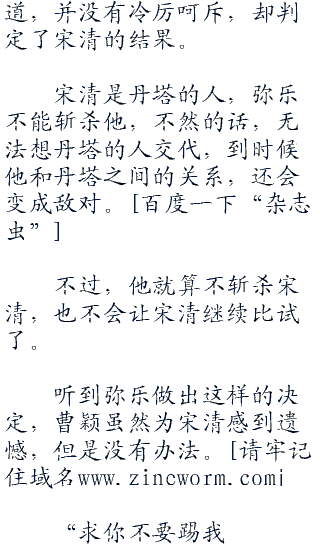 道，并没有冷厉呵斥，却判
定了宋清的结果。
宋清是丹塔的人，弥乐
不能斩杀他，不然的话，无
法想丹塔的人交代，到时候
他和丹塔之间的关系，还会
变成敌对。[百度一下“杂志
虫”]
不过，他就算不斩杀宋
清，也不会让宋清继续比试
了。
听到弥乐做出这样的决
定，曹颖虽然为宋清感到遗
憾，但是没有办法。[请牢记
住域名www.zincworm.com]
“求你不要踢我